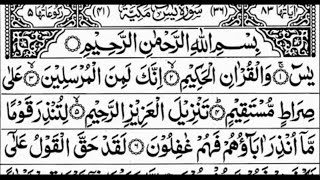 اٰیاتها ٨٣ (٣٦) سُوْرَةُ يٰسٓ مَكِّيَّةٌ (٤١) رکوعاتها ٥
بِسْمِ اللّٰهِ الرَّحْمٰنِ الرَّحِيْمِ
يٰسٓ ۝١ وَالْقُرْاٰنِ الْحَكِيْمِ ۝٢ اِنَّكَ لَمِنَ الْمُرْسَلِيْنَ ۝٣ عَلٰى
صِرَاطٍ مُّسْتَقِيْمٍ ۝٤ تَنْزِيْلَ الْعَزِيْزِ الرَّحِيْمِ ۝٥ لِتُنْذِرَ قَوْمًا
مَّاۤ اُنْذِرَ اٰبَآؤُهُمْ فَهُمْ غٰفِلُوْنَ ۝٦ لَقَدْ حَقَّ الْقَوْلُ عَلٰٓى